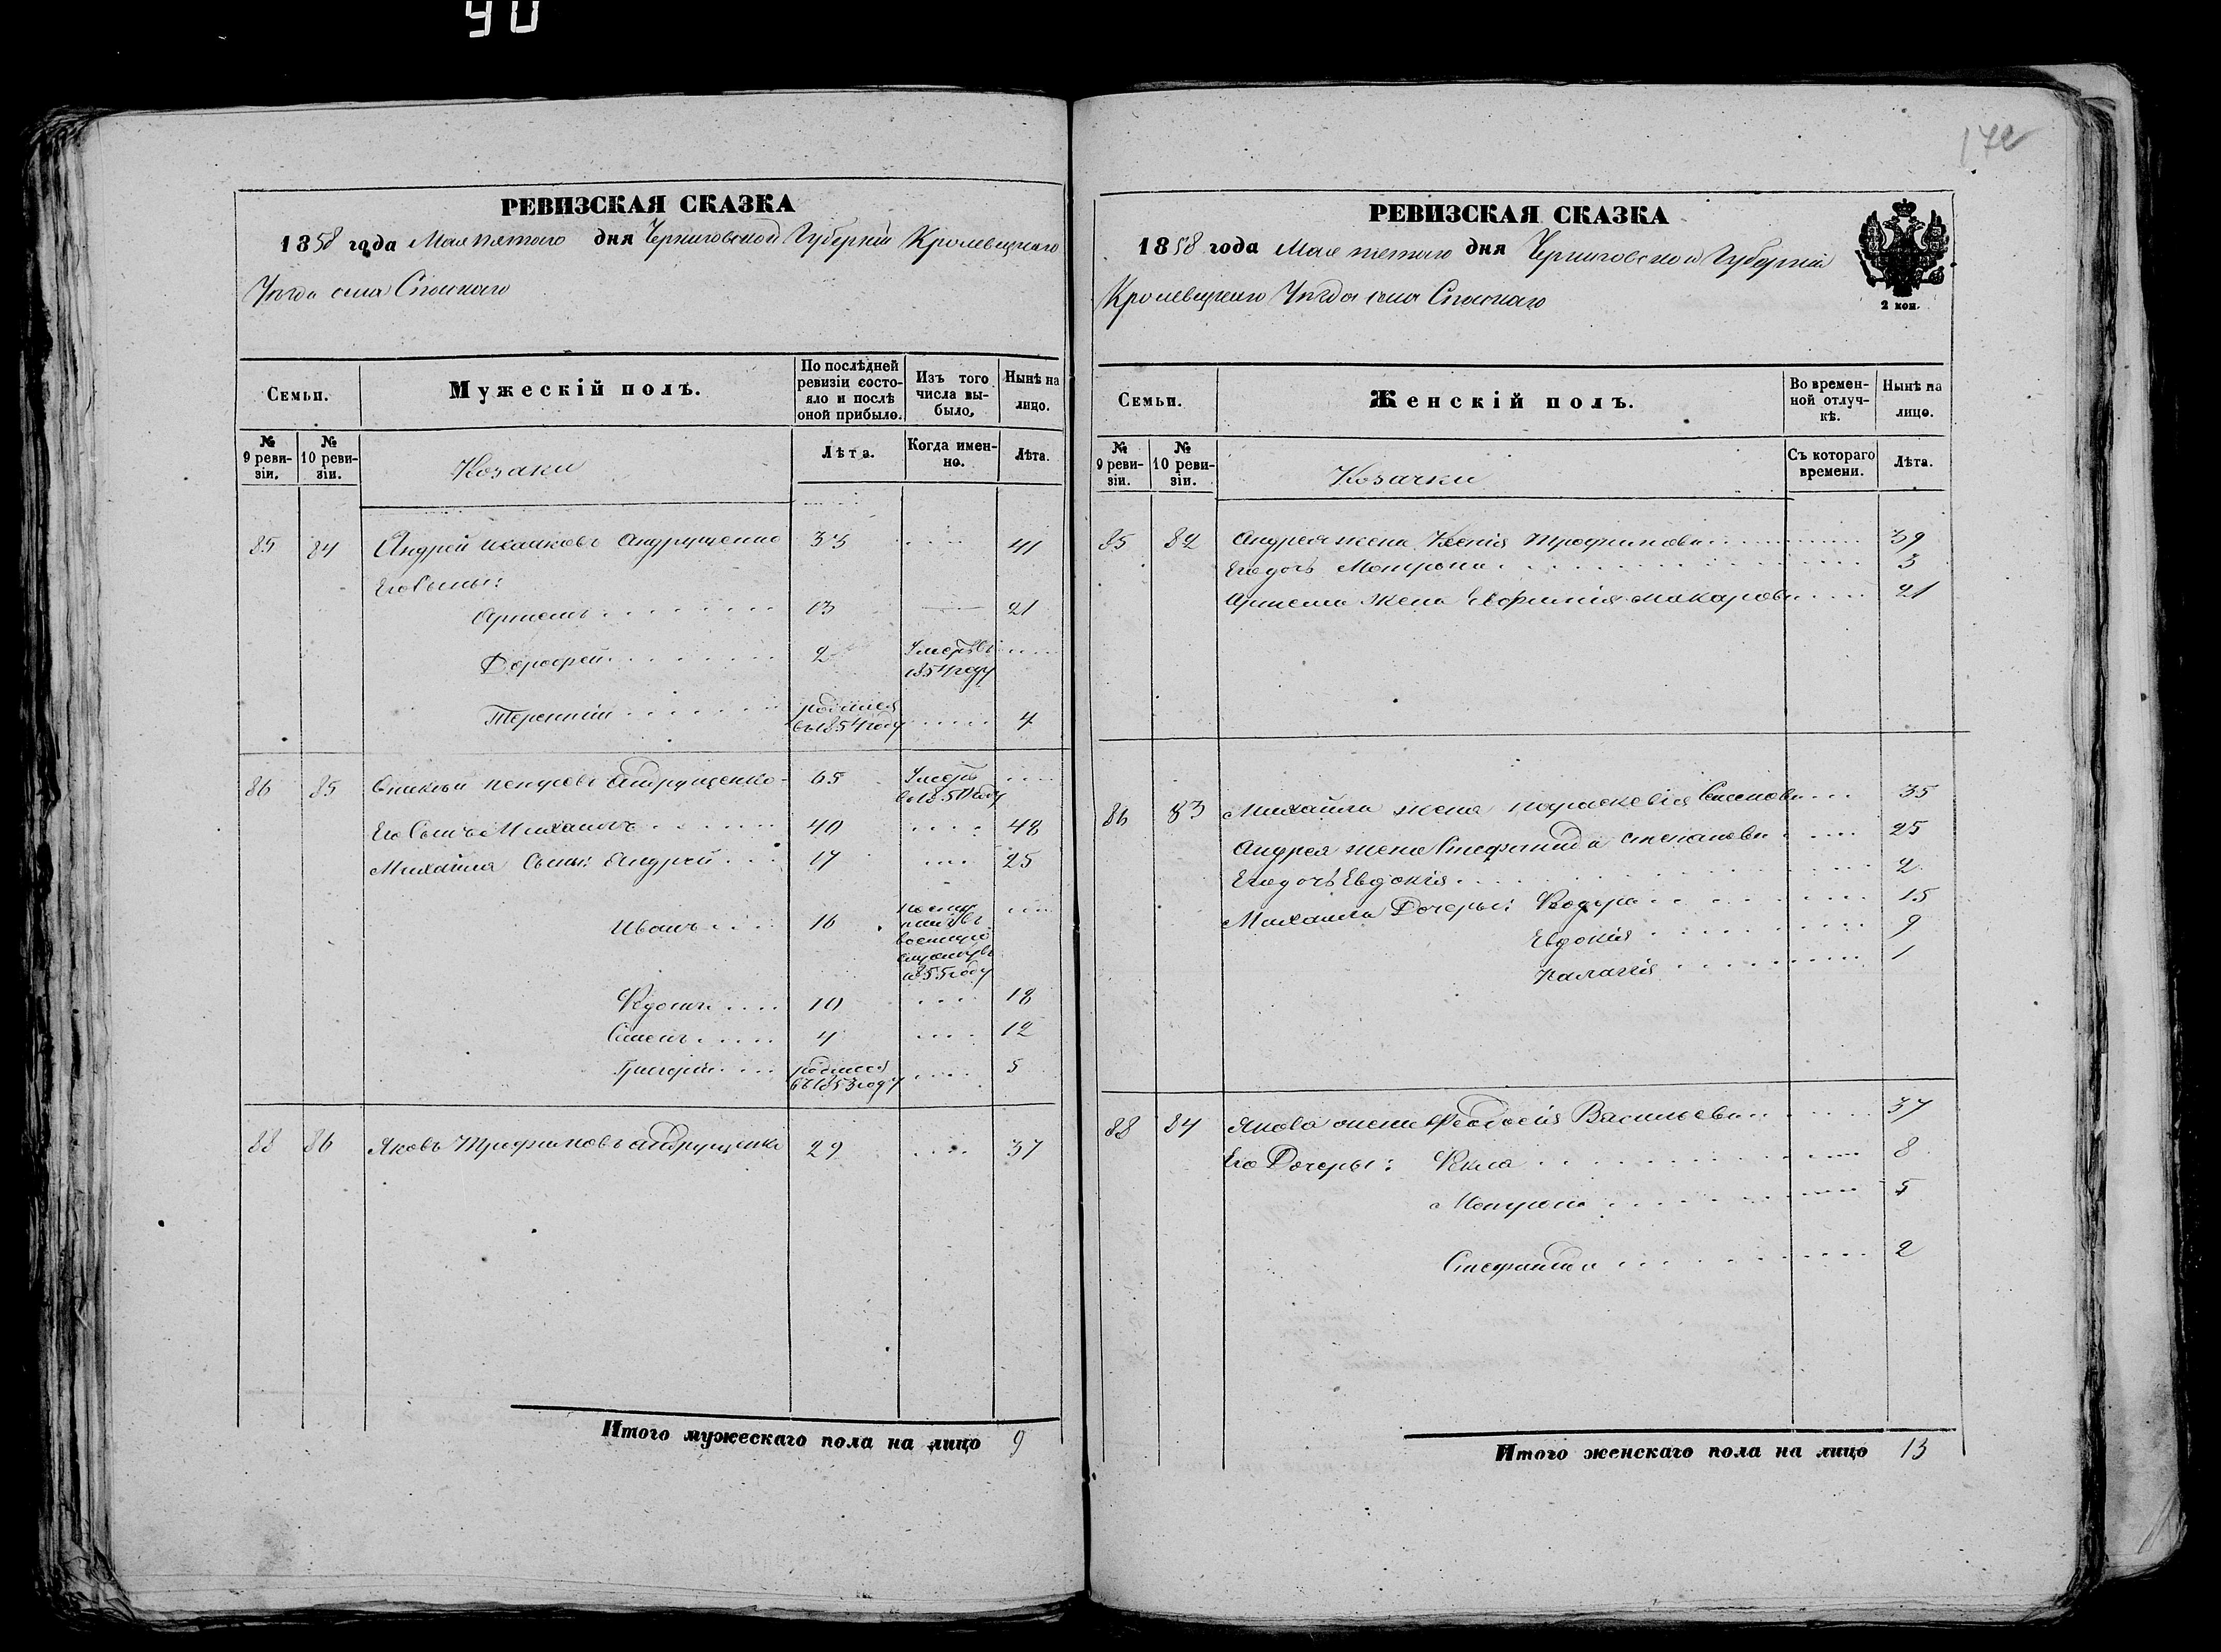 90
172
РЕВИЗСКАЯ СКАЗКА
1858 года Мая пятого дня Черниговской Губерніи Кролевецкаго
Уѣзда села Спаскаго
Семьи.
Мужескій полъ.
По послѣдней ревизіи состояло и послѣ оной прибыло.
Изъ того числа выбыло.
Нынѣ на лицо.
№ 9 ревизіи.
№ 10 ревизіи.
Козаки
Лѣта.
Когда именно.
Лѣта.
85 84 Андрей Андрущенко 33 41
Его Сыны:
Артемъ 13 21
Дорофей 2 Умеръ въ 1854 году
Терентій родился въ 1854 году 4
86 85 Андрущенко 65 Умеръ въ 1851 году
Его Сынъ Михаилъ 40 48
Михаила Сыны: Андрей 17 25
Иванъ 16 поступилъ въ военную службу въ 1855 году
10 18
Семенъ 4 12
Григорій родился въ 1853 году 5
88 86 Яковъ Трофимовъ Андрущенко 29 37
Итого мужескаго пола на лицо 9
РЕВИЗСКАЯ СКАЗКА
1858 года Мая пятого дня Черниговской Губерніи
Кролевецкаго Уѣзда села Спаскаго
2 коп.
Семьи.
Женскій полъ.
Во временной отлучкѣ.
Нынѣ на лицо.
№ 9 ревизіи.
№ 10 ревизіи.
Козачки
Съ котораго времени.
Лѣта.
85 82 Андрея жена Ксенія Трофимова 39
Его дочь Мотрона 3
Артема жена Евфимія Макарова 21
86 83 Михайла жена Параскевія Семенова 35
Андрея жена Степанова 25
Его дочь Евдокія 2
Михаила Дочеры: Федора 15
Евдокія 9
Палагія 1
88 84 Якова жена Феодосія Васильева 37
Его Дочеры: Фекла 8
Мотрона 5
Стефанида 2
Итого женскаго пола на лицо 13